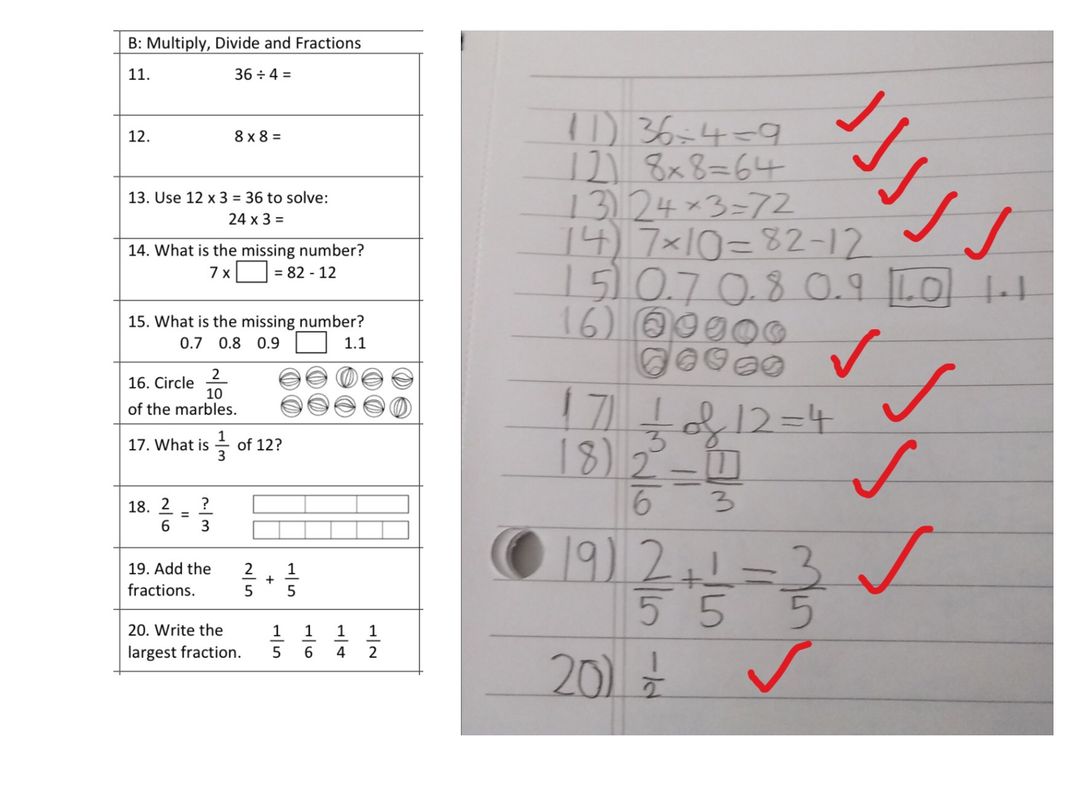 B: Multiply, Divide and Fractions
11. 36 ÷ 4 =
12. 8 x 8 =
13. Use 12 x 3 = 36 to solve:
24 x 3 =
14. What is the missing number?
7 x □ = 82 - 12
15. What is the missing number?
0.7 0.8 0.9 □ 1.1
16. Circle 2/10
of the marbles.
17. What is 1/3 of 12?
18. 2/6 = ?/3
19. Add the fractions. 2/5 + 1/5
20. Write the largest fraction. 1/5 1/6 1/4 1/2
11) 36÷4=9
12) 8×8=64
13) 24×3=72
14) 7×10=82-12
15) 0.7 0.8 0.9 1.0 1.1
16)
17) 1/3 of 12=4
18) 2/6 = 1/3
19) 2/5 + 1/5 = 3/5
20) 1/2